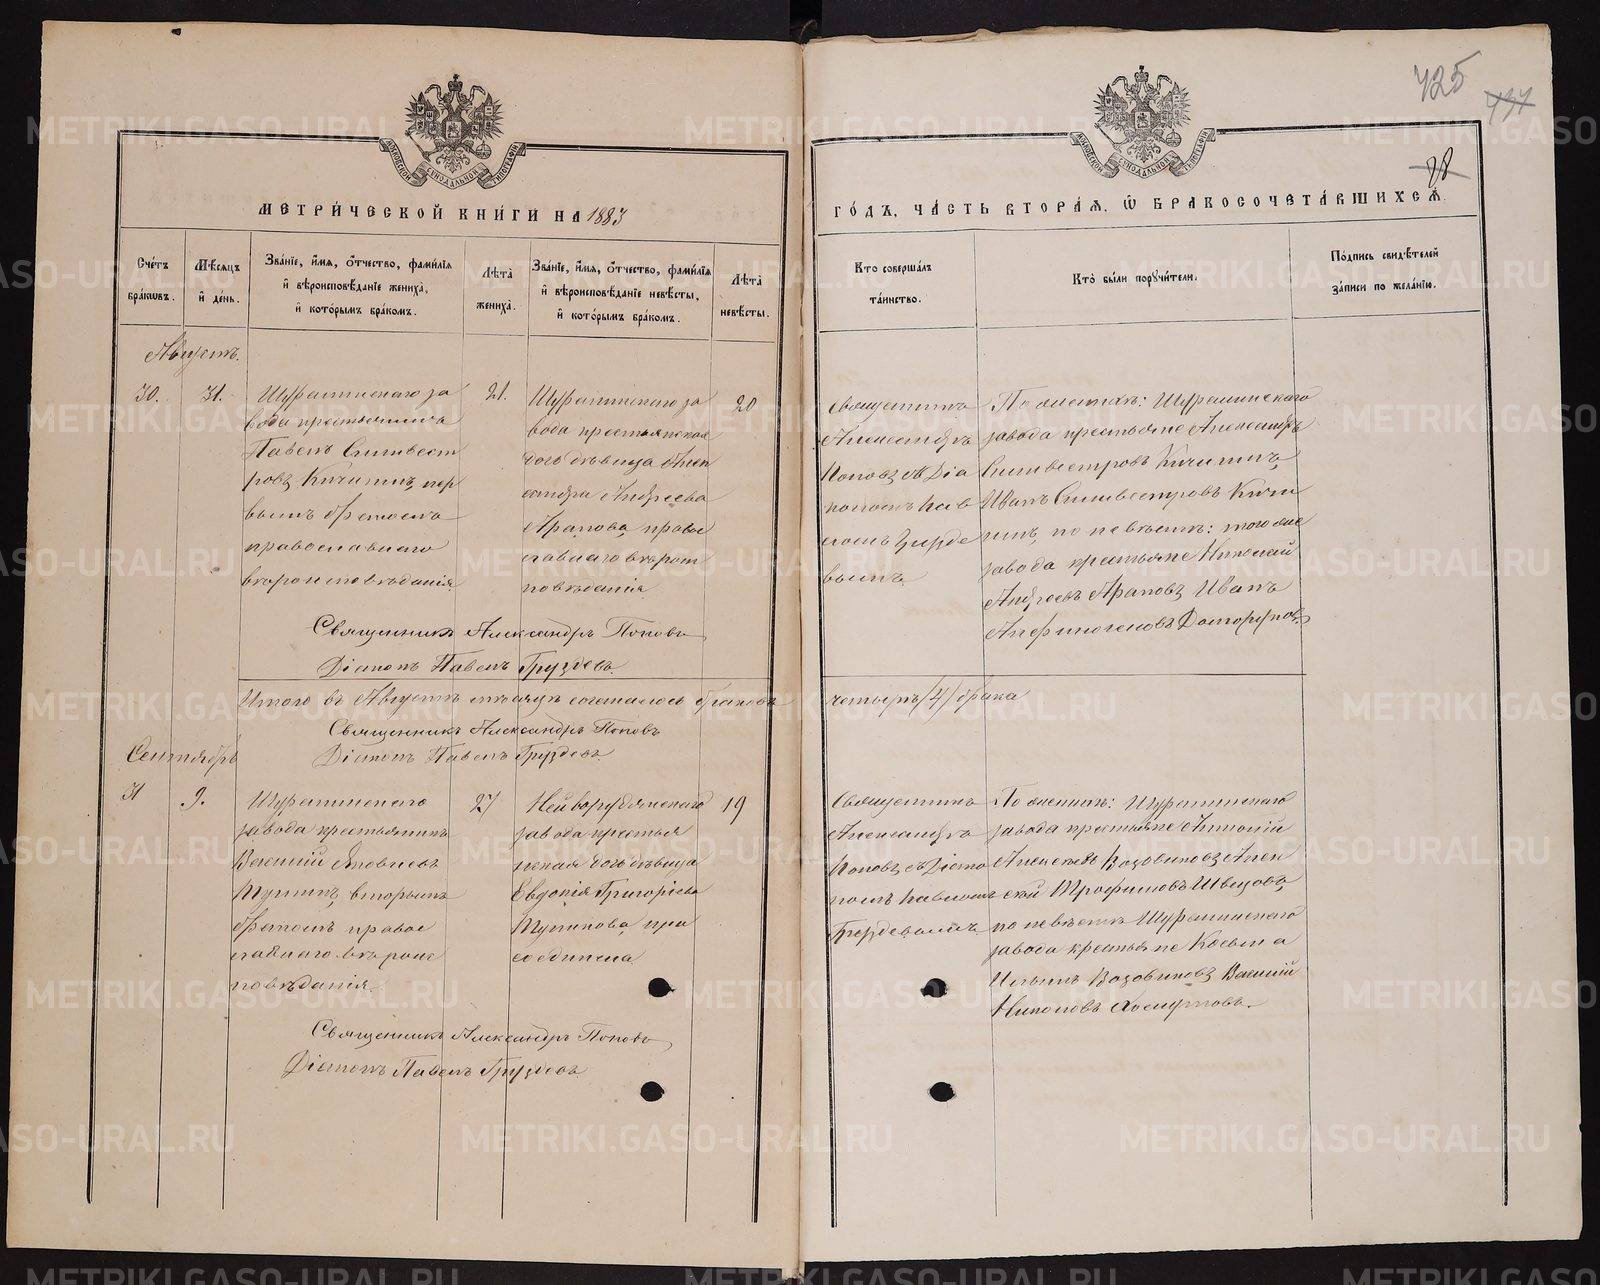 425
437
28
МЕТРИЧЕСКОЙ КНИГИ НА 1883
ГОДЪ, ЧАСТЬ ВТОРАЯ, Ѡ БРАКОСОЧЕТАВШИХСЯ.
Счетъ браковъ.
Мѣсяцъ и день.
Званіе, имя, отчество, фамилія
и вѣроисповѣданіе жениха,
и которымъ бракомъ.
Лѣта жениха.
Званіе, имя, отчество, фамилія
и вѣроисповѣданіе невѣсты,
и которымъ бракомъ.
Лѣта невѣсты.
Кто совершалъ
таинство.
Кто были поручители.
Подпись свидѣтелей
записи по желанію.
Августъ.
30.
31.
Шуралинскаго за
вода крестьянинъ
Павелъ Сильвест
ровъ Кичигинъ, пер
вымъ бракомъ
православнаго
вѣроисповѣданія.
21.
Шуралинскаго за
вода крестьянская
дочь дѣвица Алек
сандра Андреева
Арапова, право
славнаго вѣроис
повѣданія.
20
Священникъ
Александръ
Поповъ съ Діа
кономъ Пав
ломъ Грузде
вымъ.
По женихѣ: Шуралинскаго
завода крестьяне Александръ
Сильвестровъ Кичигинъ,
Иванъ Сильвестровъ Кичи
гинъ, по невѣстѣ: того же
завода крестьяне Николай
Андреевъ Араповъ Иванъ
Священникъ Александръ Поповъ
Діаконъ Павелъ Груздевъ.
Итого въ Августѣ мѣсяцѣ состоялось браковъ
четыре /4/ брака
Священникъ Александръ Поповъ
Діаконъ Павелъ Груздевъ.
Сентябрь
31
9.
Шуралинскаго
завода крестьянинъ
Василій Яковлевъ
вторымъ
бракомъ право
славнаго вѣроис
повѣданія.
27
Нейворудянскаго
завода крестья
нская дочь дѣвица
Евдокія Григоріева
при
соединена
19
Священникъ
Александръ
Поповъ съ Діако
номъ Павломъ
Груздевымъ.
По женихѣ: Шуралинскаго
завода крестьяне Антоній
Алексѣевъ Возовиковъ Алек
сѣй Трофимовъ Швецовъ,
по невѣстѣ Шуралинскаго
завода крестьяне Косьма
Ильинъ Возовиковъ Василій
Никоновъ Хомутовъ.
Священникъ Александръ Поповъ
Діаконъ Павелъ Груздевъ
METRIKI.GASO-URAL.RU